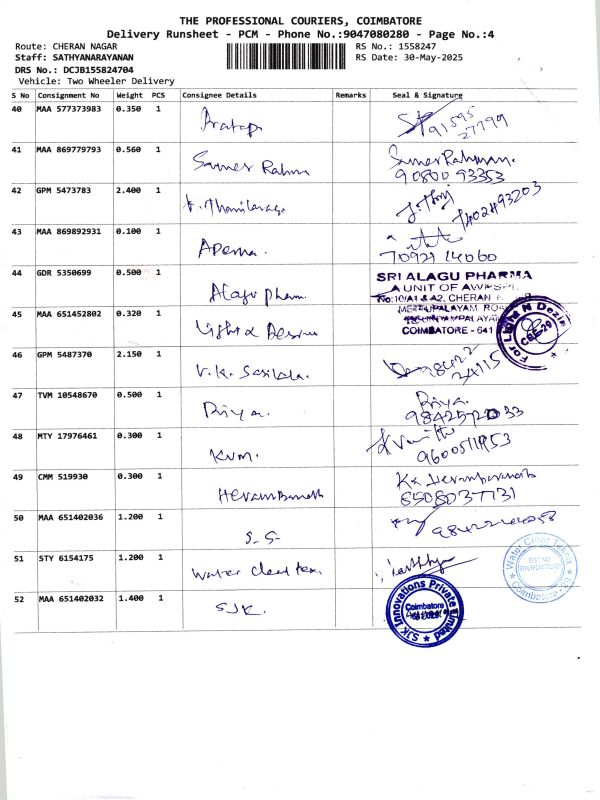 THE PROFESSIONAL COURIERS, COIMBATORE
Delivery Runsheet - PCM - Phone No.:9047080280 - Page No.:4
Route: CHERAN NAGAR RS No.: 1558247
Staff: SATHYANARAYANAN RS Date: 30-May-2025
DRS No.: DCJB155824704
Vehicle: Two Wheeler Delivery
S No Consignment No Weight PCS Consignee Details Remarks Seal & Signature
40 MAA 577373983 0.350 1 Pratap 91595
27799
41 MAA 869779793 0.560 1 Sumer Rahman
9080093353
42 GPM 5473783 2.400 1
43 MAA 869892931 0.100 1 Aperna.
7092114060
44 GDR 5350699 0.500 1 Alagu Pharm. SRI ALAGU PHARMA
A UNIT OF
No:10/A1 & A2, CHERAN
METTUPALAYAM ROAD
45 MAA 651452802 0.320 1 Light & Design
COIMBATORE - 641
For Light N Dezin
CBE-29
46 GPM 5487370 2.150 1 V.K. Sasikala. 98422
24115
47 TVM 10548670 0.500 1 Priya. Priya.
9842572033
48 MTY 17976461 0.300 1 KVM.
9600511953
49 CMM 519930 0.300 1 Herambanath
6508037731
50 MAA 651402036 1.200 1 S.S
51 STY 6154175 1.200 1 Water Clear Tex. Karthi
Water Clear Teknix
GST NO
Coimbatore
52 MAA 651402032 1.400 1 SJK. SJK Innovations Private Limited
Coimbatore